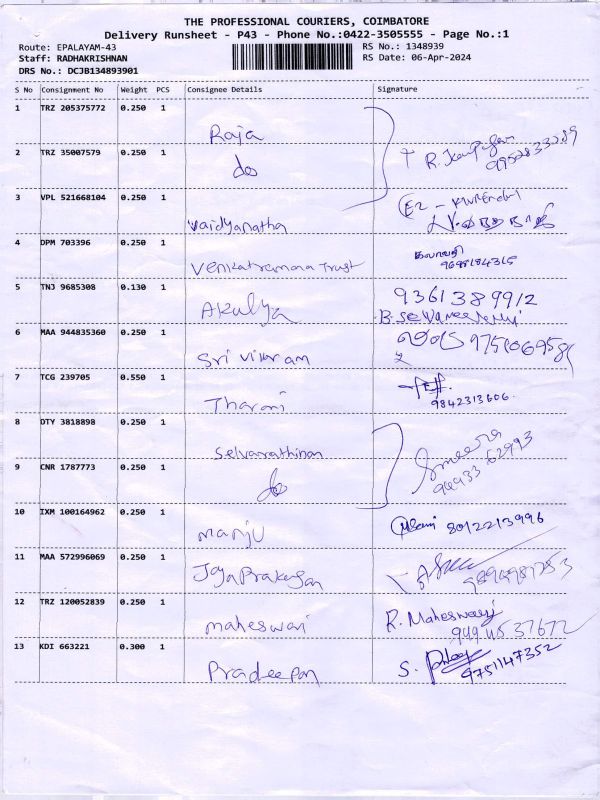 THE PROFESSIONAL COURIERS, COIMBATORE
Delivery Runsheet - P43 - Phone No.:0422-3505555 - Page No.:1
Route: EPALAYAM-43 RS No.: 1348939
Staff: RADHAKRISHNAN RS Date: 06-Apr-2024
DRS No.: DCJB134893901
S No Consignment No Weight PCS Consignee Details Signature
1 TRZ 205375772 0.250 1 Raja
2 TRZ 35007579 0.250 1 do R.
3 VPL 521668104 0.250 1 Vaidyanatha
4 DPM 703396 0.250 1 Venkatramana Trust
5 TNJ 9685308 0.130 1 Akulya 9361389912
6 MAA 944835360 0.250 1 Sri Vikram
7 TCG 239705 0.550 1 Tharani 9842313606.
8 OTY 3818898 0.250 1 Selvarathinan
9 CNR 1787773 0.250 1 do
10 IXM 100164962 0.250 1 Manju 8012213996
11 MAA 572996069 0.250 1 JayaPrakasan
12 TRZ 120052839 0.250 1 maheswari R. Maheswari
13 KDI 663221 0.300 1 Pradeepan S. 9751147352